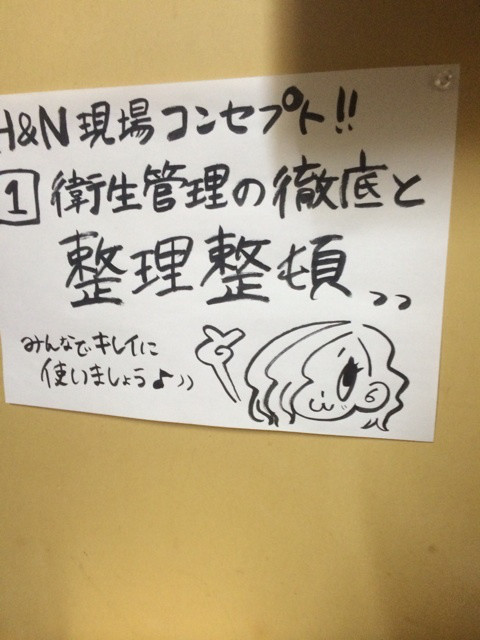 H&N現場コンセプト!!
1 衛生管理の徹底と
整理整頓
みんなでキレイに
使いましょう♪